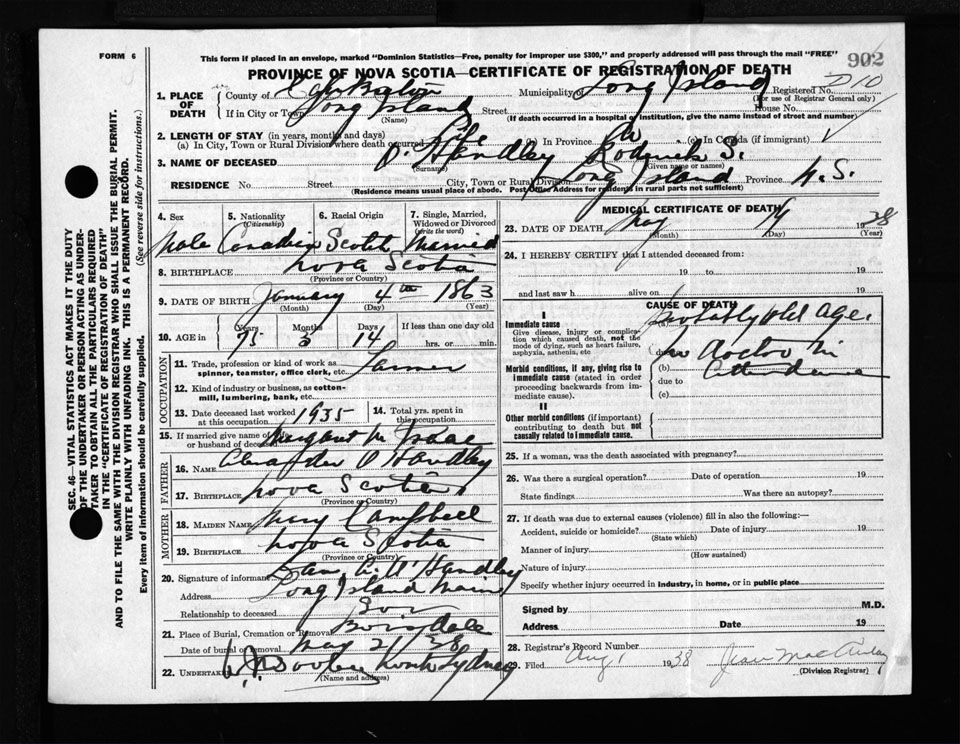 FORM 6
This form if placed in an envelope, marked "Dominion Statistics—Free, penalty for improper use $300," and properly addressed will pass through the mail "FREE"
902
PROVINCE OF NOVA SCOTIA—CERTIFICATE OF REGISTRATION OF DEATH
1. PLACE OF DEATH
County of
Municipality of Long Island
Registered No.
(For use of Registrar General only)
If in City or Town Long Island Street House No.
(Name) (If death occurred in a hospital or institution, give the name instead of street and number)
2. LENGTH OF STAY (in years, months and days)
(a) In City, Town or Rural Division where death occurred Life (b) In Province (c) In Canada (if immigrant)
3. NAME OF DECEASED O'Handley Roderick S.
(Surname) (Given name or names)
RESIDENCE No. Street City, Town or Rural Division Long Island Province N.S.
(Residence means usual place of abode. Post Office Address for residents in rural parts not sufficient)
4. Sex
5. Nationality (Citizenship)
6. Racial Origin
7. Single, Married, Widowed or Divorced (write the word)
Male Canadian Scotch Married
8. BIRTHPLACE Nova Scotia
(Province or Country)
9. DATE OF BIRTH January 4th 1863
(Month) (Day) (Year)
10. AGE in Years Months Days If less than one day
75 14 hrs. or min.
OCCUPATION
11. Trade, profession or kind of work as spinner, teamster, office clerk, etc. Farmer
12. Kind of industry or business, as cotton-mill, lumbering, bank, etc.
13. Date deceased last worked at this occupation 1935
14. Total yrs. spent in this occupation
15. If married give name of wife or husband of deceased Margaret M. Isaac
FATHER
16. NAME Alexander O'Handley
17. BIRTHPLACE Nova Scotia
(Province or Country)
MOTHER
18. MAIDEN NAME Mary Campbell
19. BIRTHPLACE Nova Scotia
(Province or Country)
20. Signature of informant O'Handley
Address Long Island
Relationship to deceased Son
21. Place of Burial, Cremation or Removal Boisdale
Date of burial or removal May 21/38
22. UNDERTAKER North Sydney
(Name and address)
MEDICAL CERTIFICATE OF DEATH
23. DATE OF DEATH May 19 1938
(Month) (Day) (Year)
24. I HEREBY CERTIFY that I attended deceased from:
19 to 19
and last saw h alive on 19
CAUSE OF DEATH
I
Immediate cause
Give disease, injury or complication which caused death, not the mode of dying, such as heart failure, asphyxia, asthenia, etc
(a) Probably Old Age.
due to
no doctor in
Morbid conditions, if any, giving rise to immediate cause (stated in order proceeding backwards from immediate cause).
(b) attendance
due to
(c)
II
Other morbid conditions (if important) contributing to death but not causally related to immediate cause.
25. If a woman, was the death associated with pregnancy?
26. Was there a surgical operation? Date of operation 19
State findings Was there an autopsy?
27. If death was due to external causes (violence) fill in also the following:—
Accident, suicide or homicide? Date of injury 19
(State which)
Manner of injury
(How sustained)
Nature of injury
Specify whether injury occurred in industry, in home, or in public place
Signed by M.D.
Address Date 19
28. Registrar's Record Number
29. Filed Aug 1 1938 Jean MacAulay
(Division Registrar)
SEC. 46—VITAL STATISTICS ACT MAKES IT THE DUTY
OF THE UNDERTAKER OR PERSON ACTING AS UNDER-
TAKER TO OBTAIN ALL THE PARTICULARS REQUIRED
IN THE "CERTIFICATE OF REGISTRATION OF DEATH"
AND TO FILE THE SAME WITH THE DIVISION REGISTRAR WHO SHALL ISSUE THE BURIAL PERMIT.
WRITE PLAINLY WITH UNFADING INK. THIS IS A PERMANENT RECORD.
Every item of information should be carefully supplied. (See reverse side for instructions.)